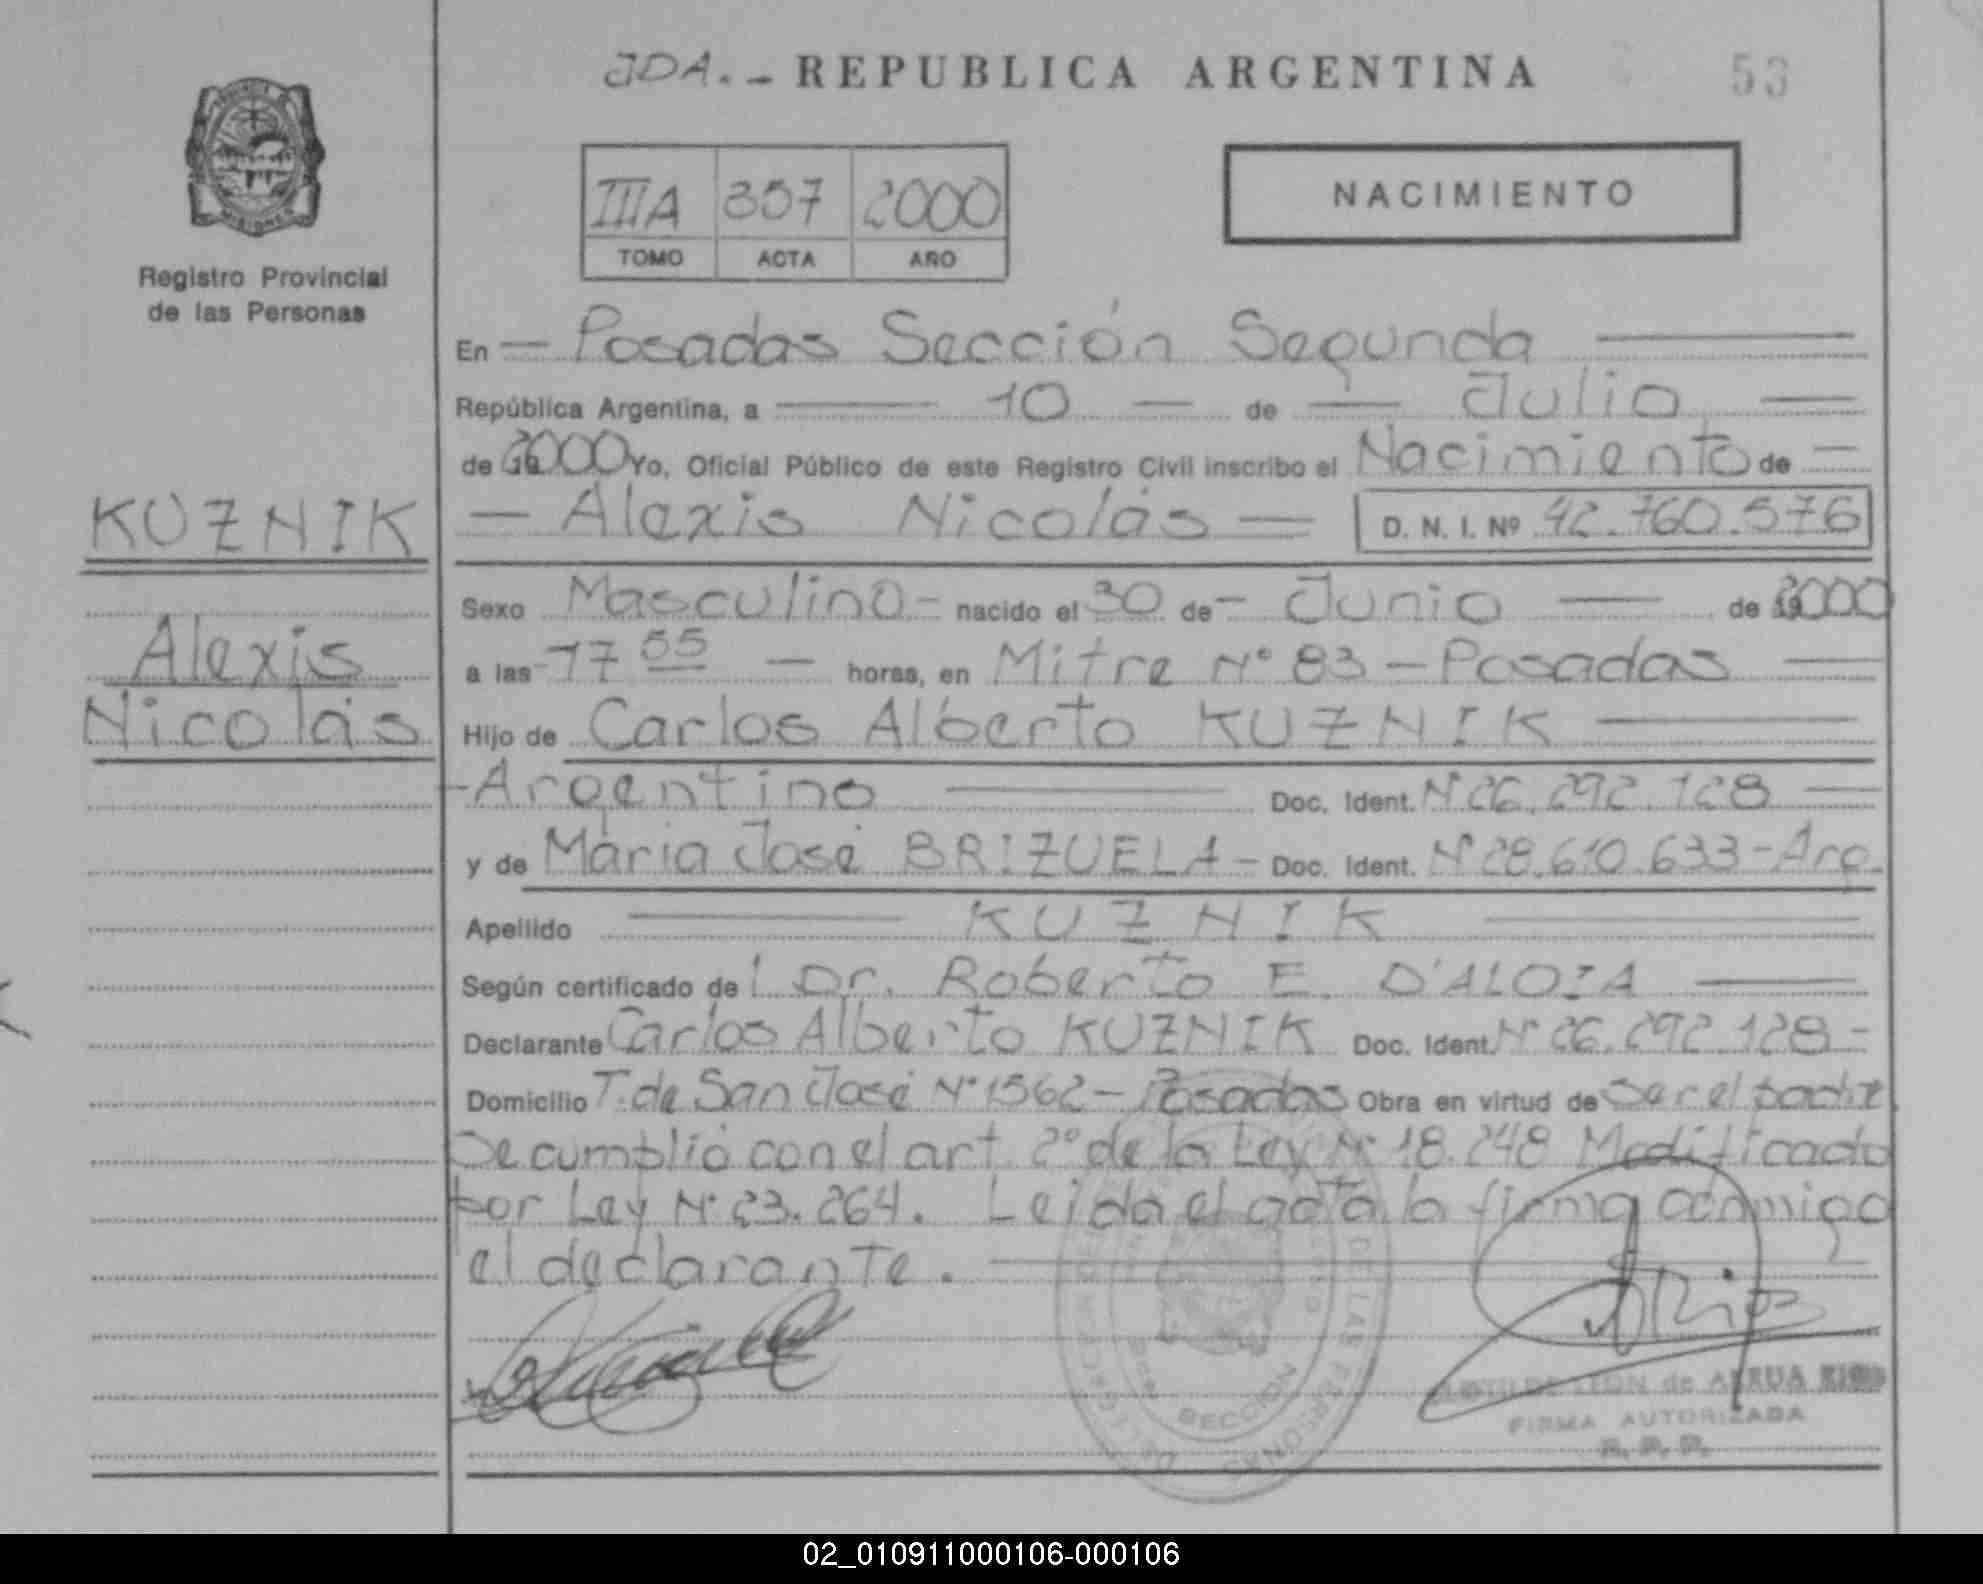 JDA. - REPUBLICA ARGENTINA 53
IIIA 357 2000
TOMO ACTA AÑO
NACIMIENTO
Registro Provincial
de las Personas
KUZNIK
Alexis
Nicolás
En - Posadas Sección Segunda
República Argentina, a 10 de Julio
de 2000 Yo, Oficial Público de este Registro Civil inscribo el Nacimiento de
- Alexis Nicolás - D. N. I. Nº 42.760.576
Sexo Masculino - nacido el 30 de - Junio de 2000
a las 17 55 - horas, en Mitre Nº 83 - Posadas
Hijo de Carlos Alberto KUZNIK
- Argentino Doc. Ident. Nº 26.292.128
y de María José BRIZUELA - Doc. Ident. Nº 28.610.633 - Arg.
Apellido KUZNIK
Según certificado del Dr. Roberto E. D'ALOIA
Declarante Carlos Alberto KUZNIK Doc. Ident. Nº 26.292.128 -
Domicilio T. de San José Nº 1562 - Posadas Obra en virtud de ser el padre
Se cumplió con el art. 2º de la Ley Nº 18.248 Modificado
por Ley Nº 23.264. Leída el acta la firma conmigo
el declarante.
DE LAS PERSONAS
SECCION
LEON de ARRUA RIOS
FIRMA AUTORIZADA
R. P. P.
02_010911000106-000106